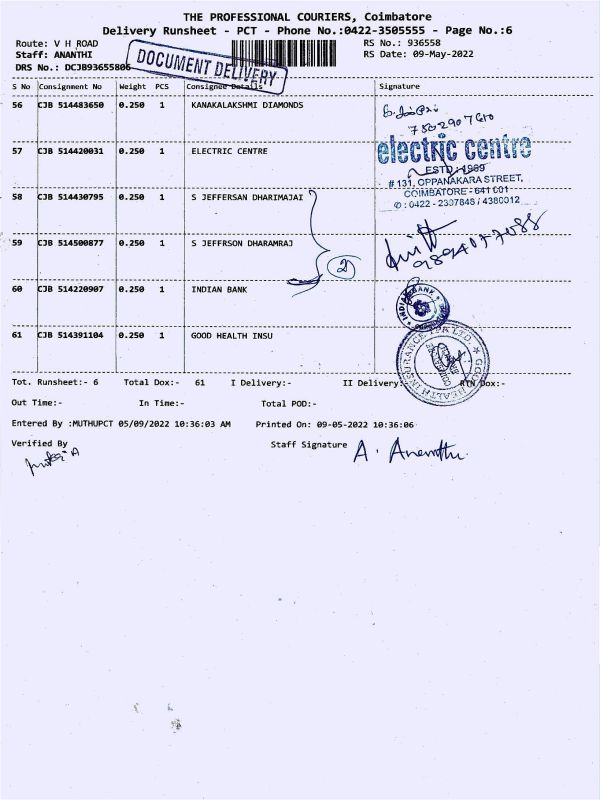 THE PROFESSIONAL COURIERS, Coimbatore
Delivery Runsheet - PCT - Phone No.:0422-3505555 - Page No.:6
Route: V H ROAD RS No.: 936558
Staff: ANANTHI RS Date: 09-May-2022
DRS No.: DCJB93655806
DOCUMENT DELIVERY
S No Consignment No Weight PCS Consignee Details Signature
56 CJB 514483650 0.250 1 KANAKALAKSHMI DIAMONDS
57 CJB 514420031 0.250 1 ELECTRIC CENTRE
electric centre
ESTD : 1989
# 131, OPPANAKARA STREET,
COIMBATORE - 641 001
✆ : 0422 - 2397848 / 4380012
58 CJB 514430795 0.250 1 S JEFFERSAN DHARIMAJAI
59 CJB 514500877 0.250 1 S JEFFRSON DHARAMRAJ
2
60 CJB 514220907 0.250 1 INDIAN BANK
INDIAN BANK
61 CJB 514391104 0.250 1 GOOD HEALTH INSU
HEALTH INSURANCE TPA LTD.
Tot. Runsheet:- 6 Total Dox:- 61 I Delivery:- II Delivery:- RTN Dox:-
Out Time:- In Time:- Total POD:-
Entered By :MUTHUPCT 05/09/2022 10:36:03 AM Printed On: 09-05-2022 10:36:06
Verified By Staff Signature A. Ananthi